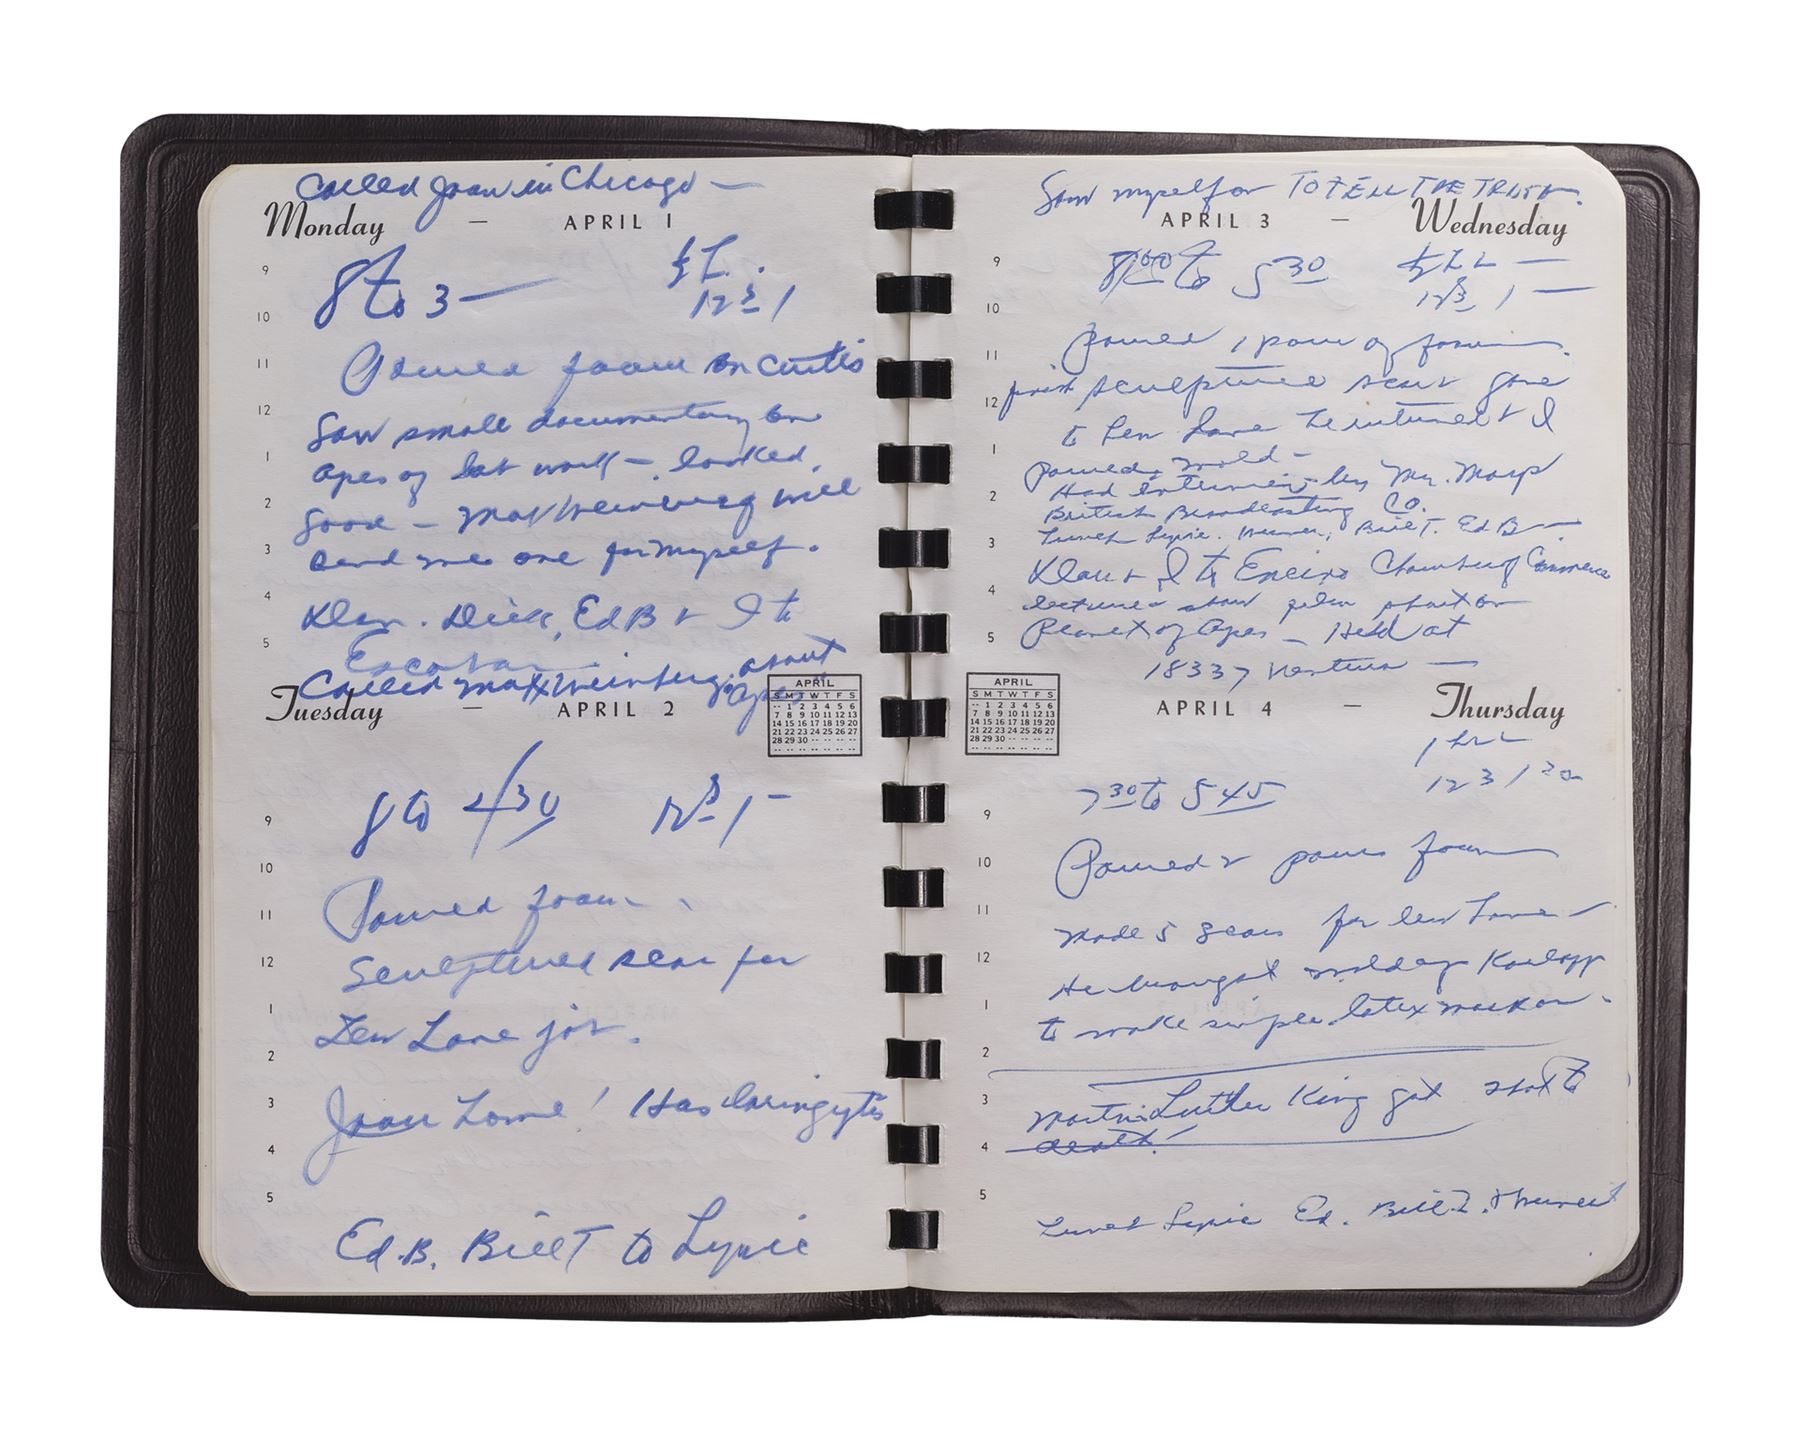 Called Joan in Chicago —
Monday — APRIL 1
8 to 3 —
12 3 1
9
10
11
12
1
2
3
4
5
Poured foam on Curtis
Saw small documentary on
apes of lab work — looked
good — Max Weinberg will
send me one for myself.
Dick, Ed B & I to
Called Max Weinberg about
apes
Tuesday — APRIL 2
APRIL
S M T W T F S
-- 1 2 3 4 5 6
7 8 9 10 11 12 13
14 15 16 17 18 19 20
21 22 23 24 25 26 27
28 29 30 -- -- -- --
8 to 4 30
12 3 1 —
9
10
11
12
1
2
3
4
5
Poured foam
Sculptured scar for
Lew Lane job.
Joan home! Has laringytis
Ed.B. Bill T to Lyric
Saw myself on TO TELL THE TRUTH.
APRIL 3 — Wednesday
to 5 30
12 3 1 —
9
10
11
12
1
2
3
4
5
Poured 1 pour of foam
sculptured scar gave
to Len Lane he returned & I
poured mold —
Had interview by Mr.
British Broadcasting Co.
Lunch Lyric. Bill T. Ed B —
& I to Encino Chamber of Commerce
lecture & show film short on
Planet of Apes — Held at
18337 Ventura —
APRIL 4 — Thursday
APRIL
S M T W T F S
-- 1 2 3 4 5 6
7 8 9 10 11 12 13
14 15 16 17 18 19 20
21 22 23 24 25 26 27
28 29 30 -- -- -- --
1 hr
12 3 1 30
7 30 to 5 45
9
10
11
12
1
2
3
4
5
Poured 2 pours foam
Made 5 scars for Lew Lane —
He brought mold of
to make simple latex mask on.
Martin Luther King got shot to
death!
Lunch Lyric Ed. Bill T. &